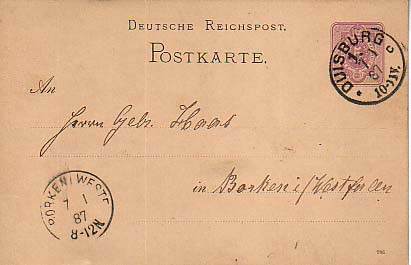 DEUTSCHE REICHSPOST.
POSTKARTE.
DUISBURG c
7 1
87
10-11V.
An
Herrn Gebr. Haas
in Borken i/Westfalen
BORKEN I. WESTF.
7 1
87
8-12N